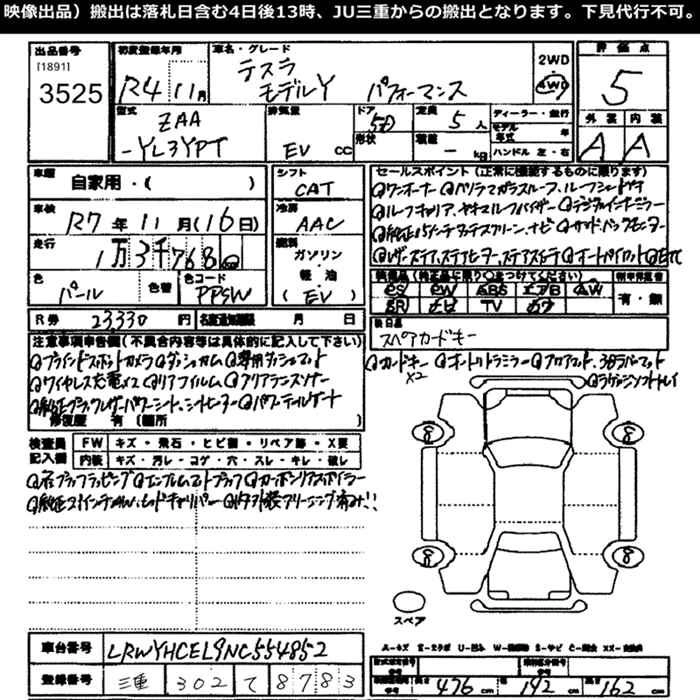 映像出品）搬出は落札日含む4日後13時、JU三重からの搬出となります。下見代行不可。
出品番号
[1891]
3525
初度登録年月
R4 11月
車名・グレード
テスラ
モデルY パフォーマンス
2WD
4WD
評価点
5
外装 内装
A A
型式
ZAA
-YL3YPT
排気量
EV cc
ドア
形状
5D
定員
5人
積載
- kg
ディーラー・並行
モデル年式 年
ハンドル 左・右
車歴
自家用・( )
車検
R7年11月(16日)
走行
1万3千768
色
パール
色替
色コード
PPSW
シフト
CAT
冷房
AAC
燃料
ガソリン
軽油
(EV)
R券
23,330円
名義変更期限 月 日
セールスポイント（正常に機能するものに限ります）
ワンオーナー パノラマガラスルーフ、ルーフシェード付
ルーフキャリア、ヤキマルーフバイザー デジタルインナーミラー
純正15インチタッチスクリーン、ナビ サイド・バックモニター
レザーステア、ステアヒーター、ステアスイッチ オートパイロット ETC
装備品（純正品に限り○をつけてください）
PS PW ABS エアB AW
SR ナビ TV カワ
有・無
後日品
スペアカードキー
注意事項申告欄（不具合内容等は具体的に記入して下さい）
ブラインドスポットカメラ ダッシュカム 専用ダッシュマット
ワイヤレス充電×2 リアフィルム クリアランスソナー
純正ブラックレザーパワーシート、シートヒーター パワーテールゲート
修復歴 有（箇所 ）
カードキー×2 オートリトラミラー フロアマット、3Dラバーマット
ラゲッジソフトトレイ
検査員記入欄
FW キズ・飛石・ヒビ割・リペア跡・X要
内装 キズ・汚レ・コゲ・穴・スレ・キレ・破レ
右ブラックラッピング エンブレムマットブラック カーボンリアスポイラー
純正21インチAW、レッドキャリパー 内外装クリーニング済み!!
8 8
8 8
スペア
車台番号
LRWYHCEL9NC554852
登録番号
三重 302 て 8783
A-キズ E-エクボ U-凹み W-補修跡 S-サビ C-腐食 XX-交換済
型式指定番号
類別区分番号
長さ 476cm 幅 192cm 高さ 162